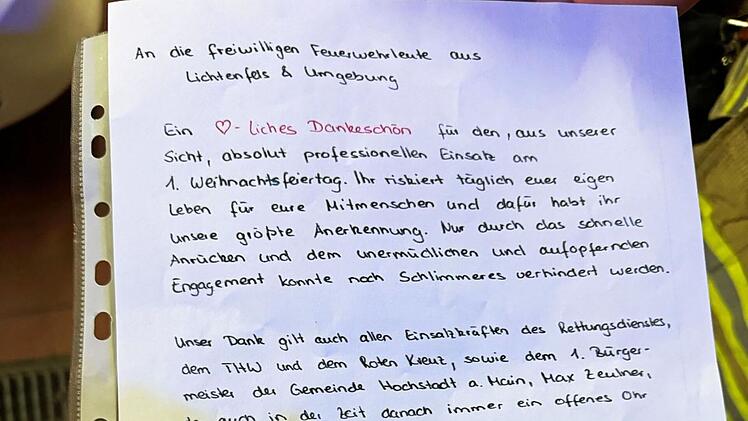 An die freiwilligen Feuerwehrleute aus
Lichtenfels & Umgebung
Ein ♡-liches Dankeschön für den, aus unserer
Sicht, absolut professionellen Einsatz am
1. Weihnachtsfeiertag. Ihr riskiert täglich euer eigen
Leben für eure Mitmenschen und dafür habt ihr
unsere größte Anerkennung. Nur durch das schnelle
Anrücken und dem unermüdlichen und aufopfernden
Engagement konnte noch Schlimmeres verhindert werden.
Unser Dank gilt auch allen Einsatzkräften des Rettungsdienstes,
dem THW und dem Roten Kreuz, sowie dem 1. Bürger-
meister der Gemeinde Hochstadt a. Main, Max Zeulner,
auch in der Zeit danach immer ein offenes Ohr